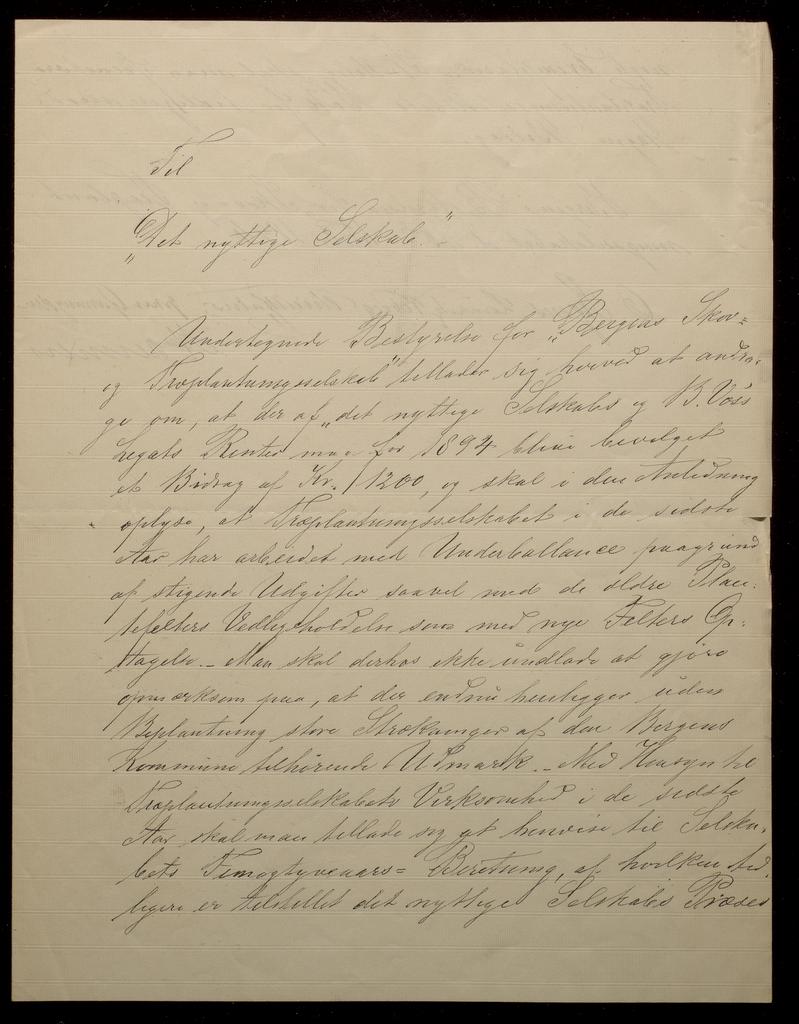 Til
„Det nyttige Selskab."
Undertegnede Bestyrelse for „Bergens Skov=
og Træplantningsselskab" tillader sig herved at andra-
ge om, at der af „det nyttige Selskabs og B. Voss
Legats Renter maa for 1894 blive bevilget
et Bidrag af Kr. 1200, og skal i den Anledning
oplyse, at Træplantningsselskabet i de sidste
Aar har arbeidet med Underballance paagrund
af stigende Udgifter saavel med de ældre Plan-
tefelters Vedligeholdelse som med nye Felters Op-
tagelse. – Man skal derhos ikke undlade at gjøre
opmærksom paa, at der endnu henligger uden
Beplantning store Strækninger af den Bergens
Kommune tilhørende Udmark. – Med Hensyn til
Træplantningsselskabets Virksomhed i de sidste
Aar skal man tillade sig at henvise til Selska-
bets Femogtyveaars= Beretning, af hvilken tid-
ligere er tilstillet det nyttige Selskabs Præses